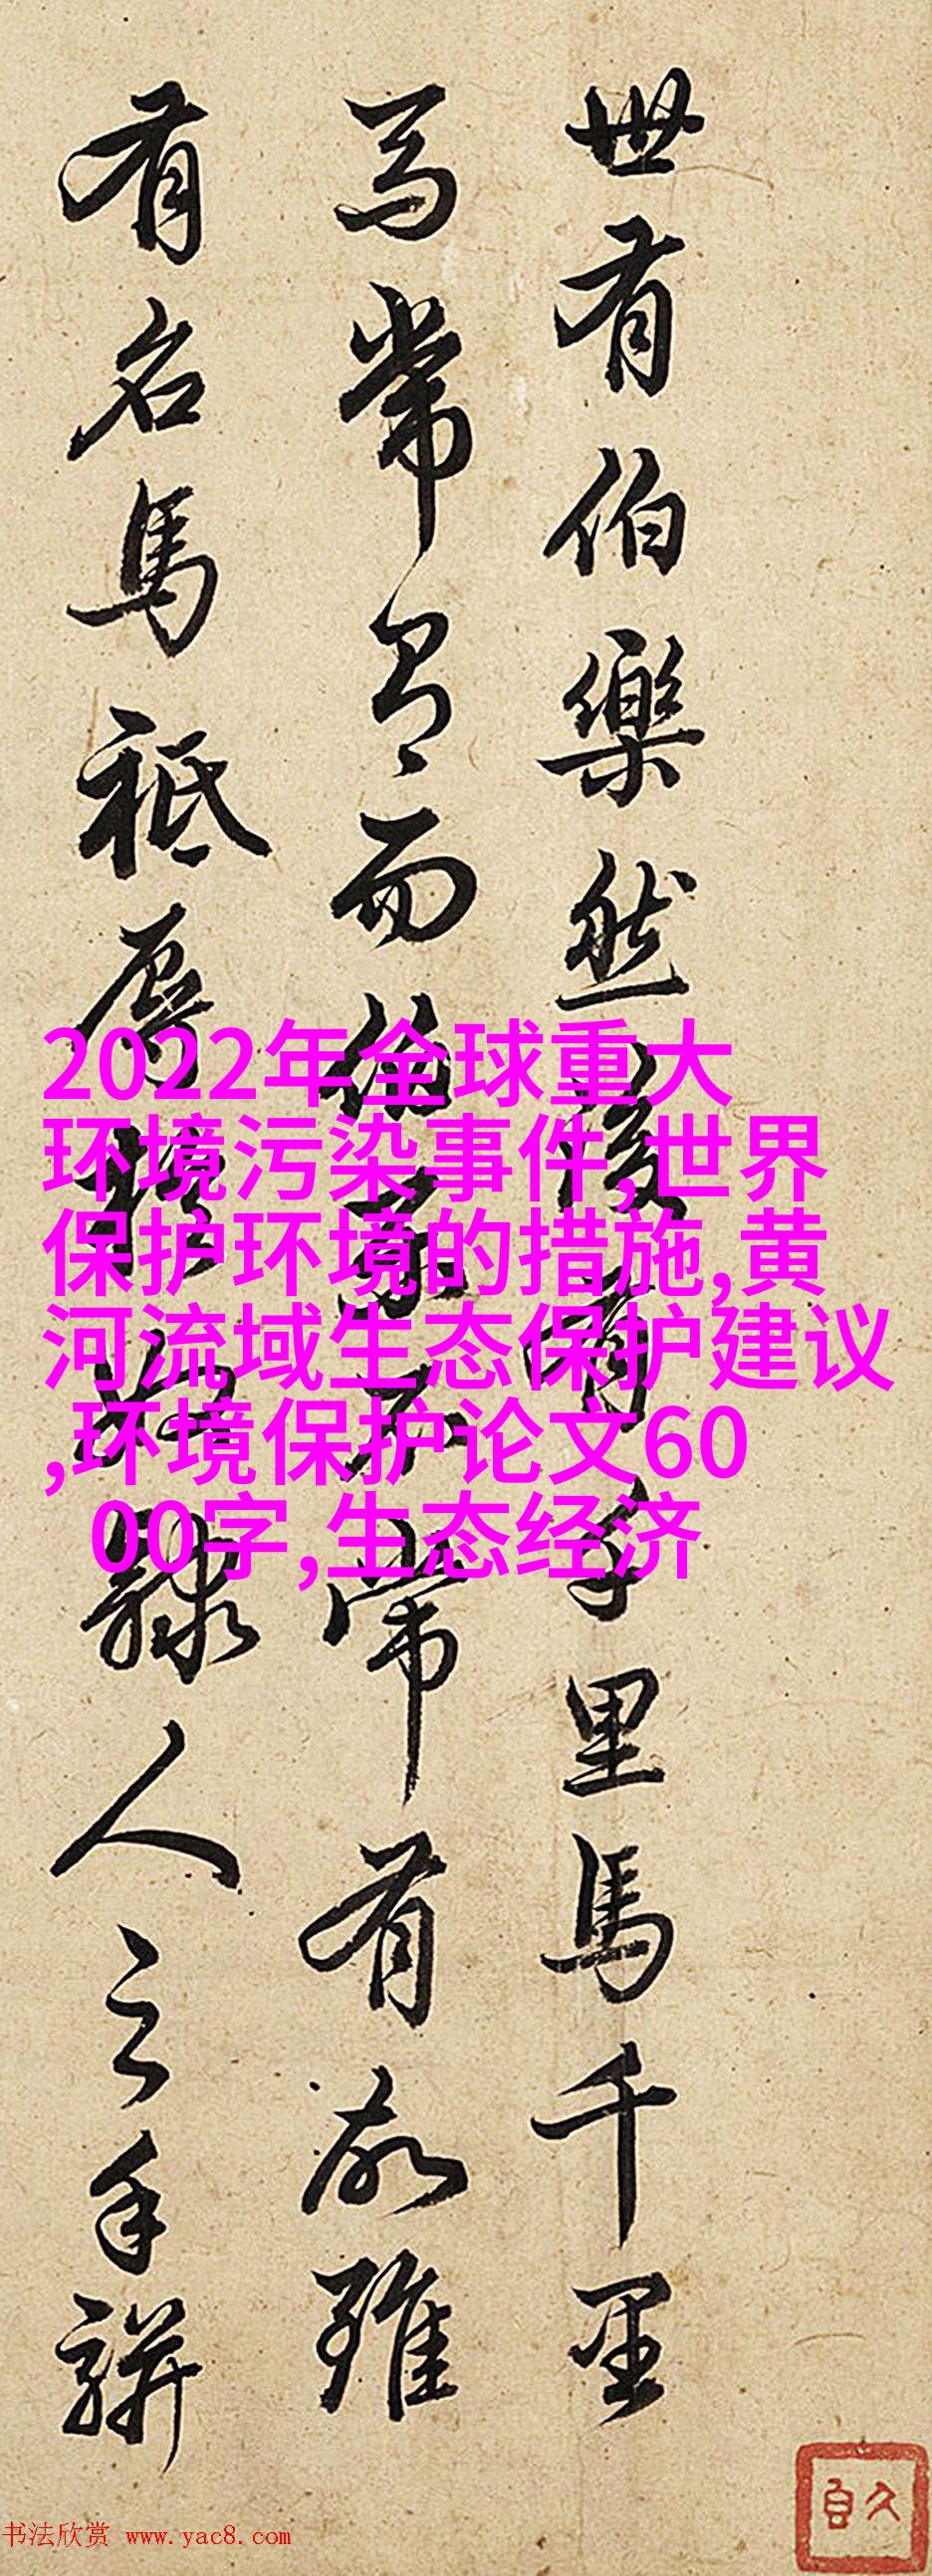 世有伯樂然後有千里馬千里
馬常有而伯樂不常有故雖
有名馬祗辱於奴隸人之手駢
2022年全球重大
环境污染事件,世界
保护环境的措施,黄
河流域生态保护建议
,环境保护论文60
00字,生态经济
书法欣赏 www.yac8.com